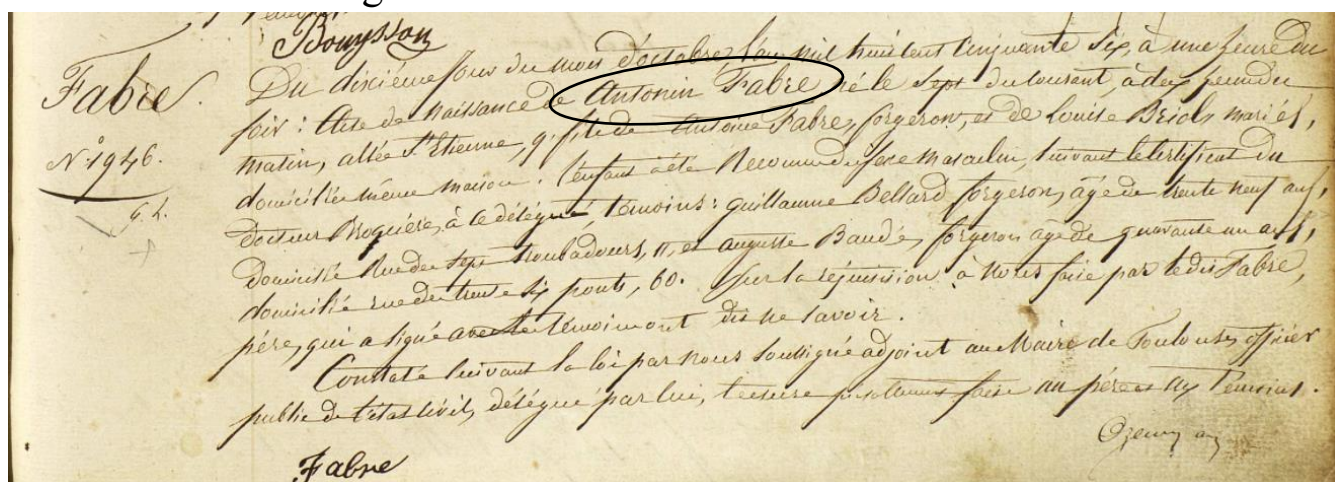 Bouysson
Fabre.
N.º 1946.
G. L.
Du dixième jour du mois d'octobre, l'an mil huit cent cinquante six, à une heure du
soir : Acte de Naissance de Antonin Fabre né le sept du courant, à deux heures du
matin, allée St Etienne, 9, fils de Antoine Fabre, forgeron, et de Louise Briol, mariés,
domiciliés même maison. l'enfant a été Reconnu du sexe masculin, suivant le certificat du
Docteur Broquière, à ce délégué, témoins : guillaume Bellard forgeron, âgé de trente neuf ans,
Domicilié Rue des Sept troubadours, 11, et auguste Baudé, forgeron âgé de quarante un ans,
domicilié rue des trente six ponts, 60. Sur la réquisition à Nous faite par ledit Fabre,
père, qui a signé les témoins ont dit ne savoir.
Constaté suivant la loi par nous soussigné adjoint au Maire de Toulouse, officier
public de l'état civil, délégué par lui, lecture faite au père et aux Témoins.
Ozenne
Fabre